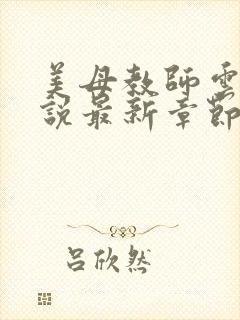 美母教師雲
說最新章節
吕欣然